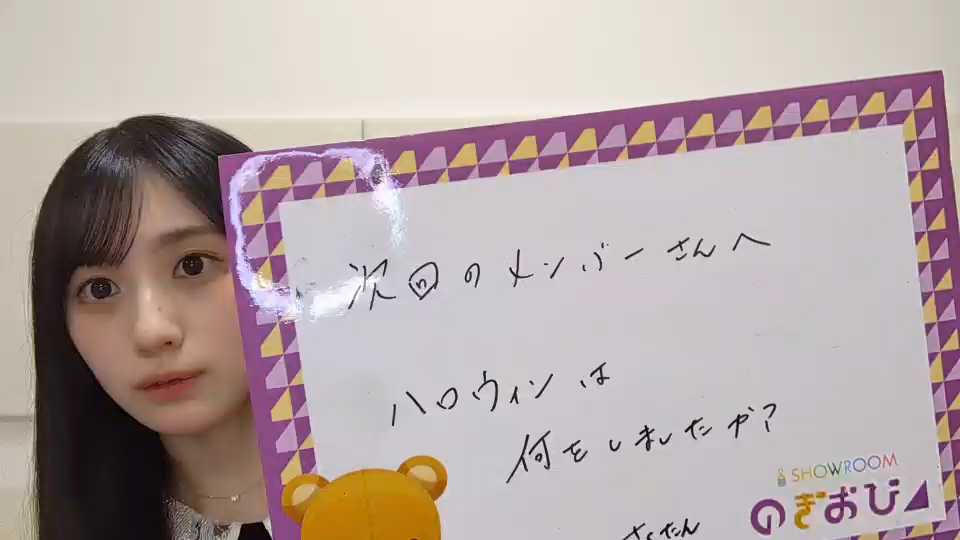 次回のメンバーさんへ
ハロウィンは
何をしましたか?
SHOWROOM
のぎおび